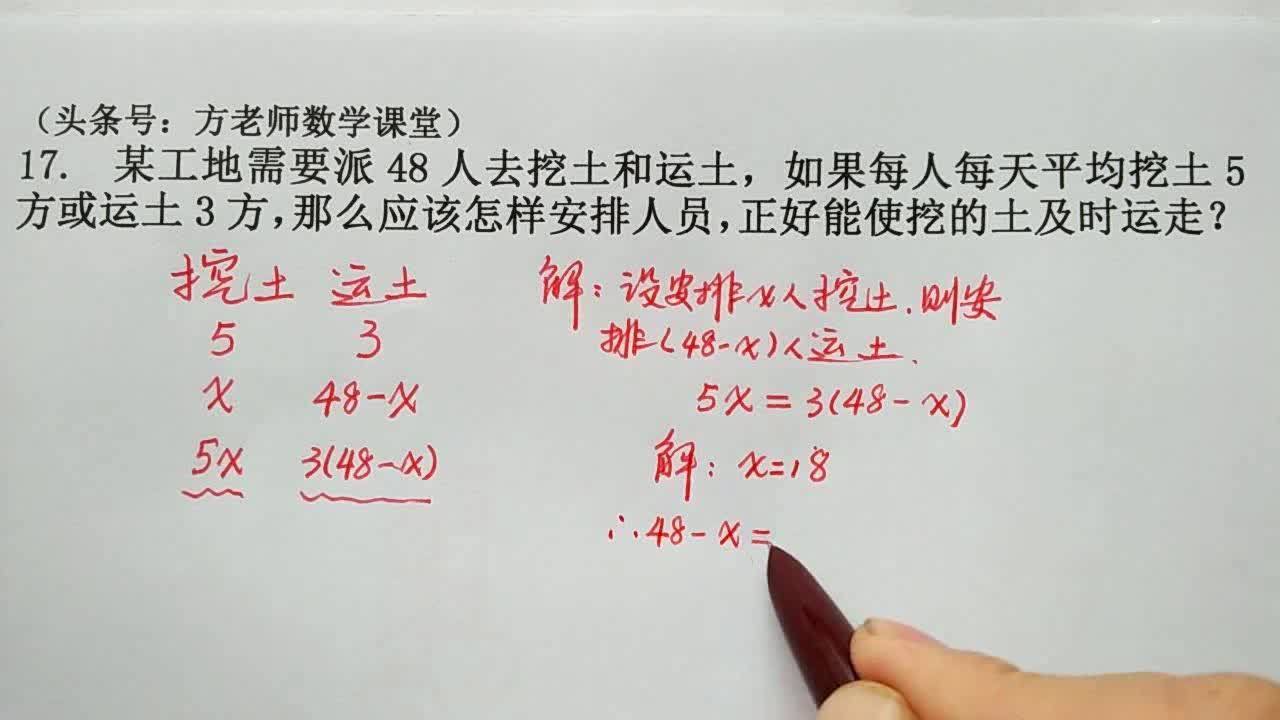 （头条号：方老师数学课堂）
17. 某工地需要派 48 人去挖土和运土，如果每人每天平均挖土 5
方或运土 3 方，那么应该怎样安排人员，正好能使挖的土及时运走？
挖土 运土
5 3
x 48-x
5x 3(48-x)
解：设安排x人挖土．则安
排(48-x)人运土．
5x=3(48-x)
解：x=18
∴48-x=